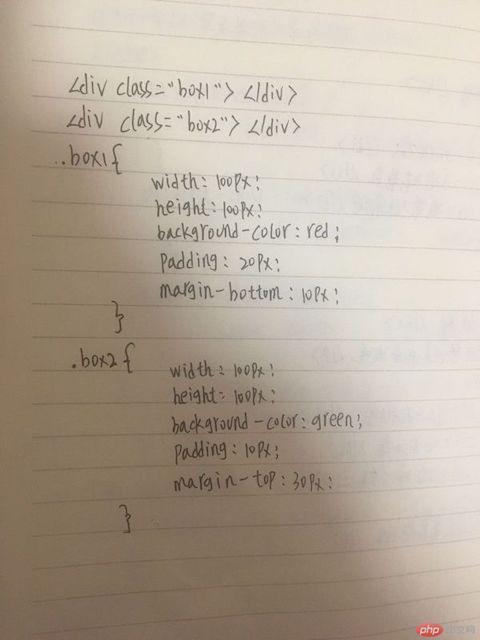 <div class="box1"> </div>
<div class="box2"> </div>
..box1{
width: 100px;
height: 100px;
background-color: red;
padding: 20px;
margin-bottom: 10px;
}
.box2{
width: 100px;
height: 100px;
background-color: green;
padding: 10px;
margin-top: 30px;
}
php中文网